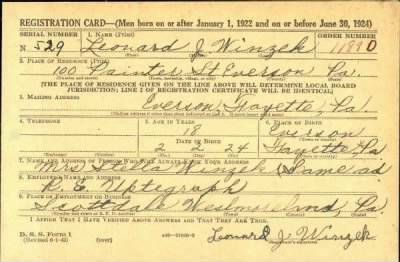 REGISTRATION CARD—(Men born on or after January 1, 1922 and on or before June 30, 1924)
SERIAL NUMBER 1. NAME (Print) ORDER NUMBER
N 529 Leonard J Winzek 11890
2. PLACE OF RESIDENCE (Print)
100 Painter St Everson Pa.
[THE PLACE OF RESIDENCE GIVEN ON THE LINE ABOVE WILL DETERMINE LOCAL BOARD
JURISDICTION; LINE 2 OF REGISTRATION CERTIFICATE WILL BE IDENTICAL]
3. MAILING ADDRESS
Everson, Fayette, Pa
4. TELEPHONE 5. AGE IN YEARS 6. PLACE OF BIRTH
18 Everson
DATE OF BIRTH
2 2 24 Fayette, Pa
7. NAME AND ADDRESS OF PERSON WHO WILL ALWAYS KNOW YOUR ADDRESS
Mrs Stella Winzek (Same ad
8. EMPLOYER'S NAME AND ADDRESS
R. E. Uptegraph
9. PLACE OF EMPLOYMENT OR BUSINESS
Scottdale Westmoreland, Pa.
I AFFIRM THAT I HAVE VERIFIED ABOVE ANSWERS AND THAT THEY ARE TRUE.
D. S. S. Form 1
(Revised 6-1-42) (over)
Leonard J Winzek